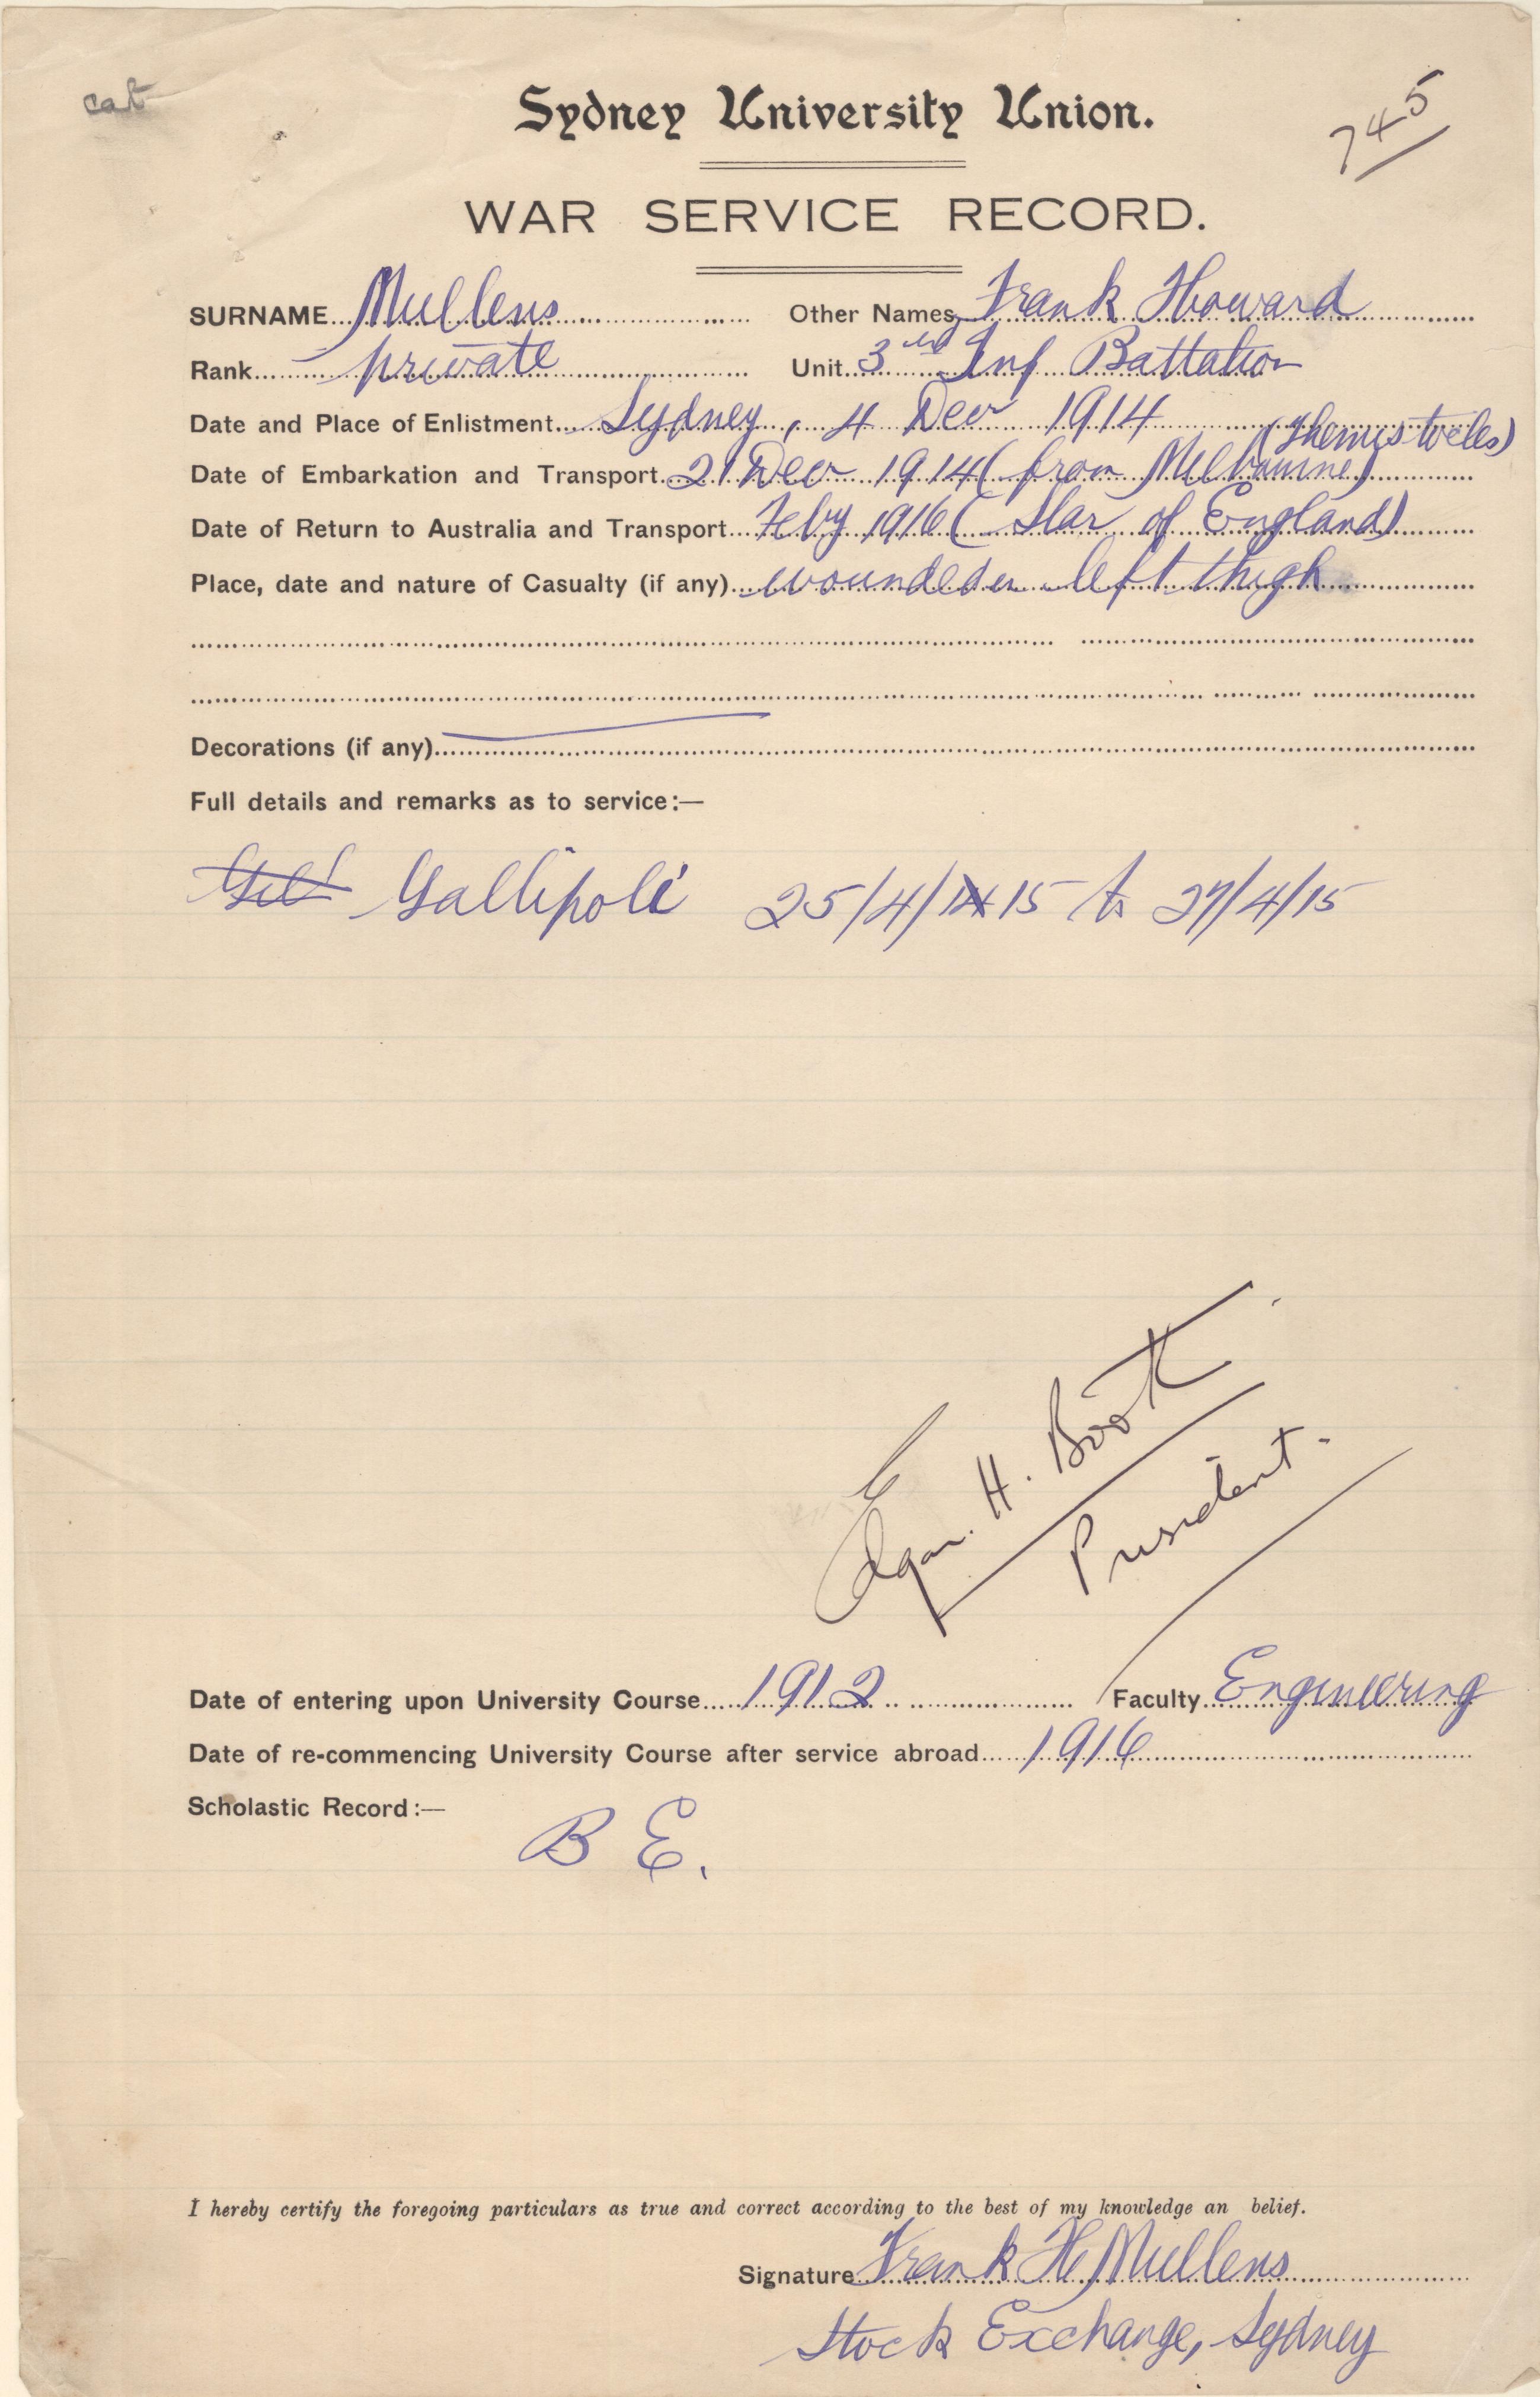 cat
Sydney University Union.
745
WAR SERVICE RECORD.
SURNAME Mullens Other Names Frank Howard
Rank private Unit 3rd Inf Battalion
Date and Place of Enlistment Sydney, 4 Dec 1914
(Themistocles)
Date of Embarkation and Transport 21 Dec 1914 (from Melbourne)
Date of Return to Australia and Transport Feby 1916 (Star of England)
Place, date and nature of Casualty (if any) wounded in left thigh
Decorations (if any)
Full details and remarks as to service:—
Gallipoli 25/4/14 15 to 27/4/15
Edgar H. Booth
President.
Date of entering upon University Course 1912 Faculty Engineering
Date of re-commencing University Course after service abroad 1916
Scholastic Record:—
B E.
I hereby certify the foregoing particulars as true and correct according to the best of my knowledge an belief.
Signature Frank H Mullens
Stock Exchange, Sydney